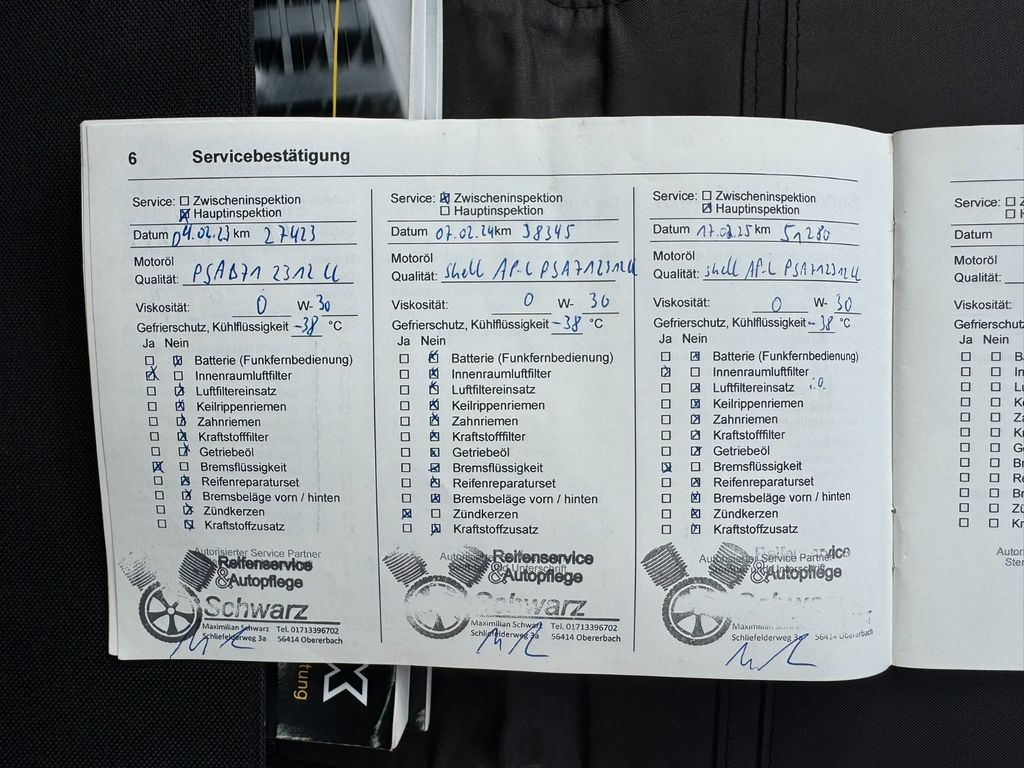 6 Servicebestätigung
Service: Zwischeninspektion
Hauptinspektion
Datum 04.02.23 km 27423
Motoröl
Qualität: PSA B71 2312
Viskosität: 0 W- 30
Gefrierschutz, Kühlflüssigkeit -38 °C
Ja Nein
Batterie (Funkfernbedienung)
Innenraumluftfilter
Luftfiltereinsatz
Keilrippenriemen
Zahnriemen
Kraftstofffilter
Getriebeöl
Bremsflüssigkeit
Reifenreparaturset
Bremsbeläge vorn / hinten
Zündkerzen
Kraftstoffzusatz
Autorisierter Service Partner
Reifenservice
& Autopflege
Schwarz
Maximilian Schwarz Tel. 01713396702
Schliefelderweg 3a 56414 Obererbach
Service: Zwischeninspektion
Hauptinspektion
Datum 07.02.24 km 38345
Motoröl
Qualität: Shell AP-L PSA712312
Viskosität: 0 W- 30
Gefrierschutz, Kühlflüssigkeit -38 °C
Ja Nein
Batterie (Funkfernbedienung)
Innenraumluftfilter
Luftfiltereinsatz
Keilrippenriemen
Zahnriemen
Kraftstofffilter
Getriebeöl
Bremsflüssigkeit
Reifenreparaturset
Bremsbeläge vorn / hinten
Zündkerzen
Kraftstoffzusatz
Reifenservice
& Autopflege
Schwarz
Maximilian Schwarz Tel. 01713396702
Schliefelderweg 3a 56414 Obererbach
Service: Zwischeninspektion
Hauptinspektion
Datum 17.03.25 km 51280
Motoröl
Qualität: Shell AP-L PSA712312
Viskosität: 0 W- 30
Gefrierschutz, Kühlflüssigkeit -38 °C
Ja Nein
Batterie (Funkfernbedienung)
Innenraumluftfilter
Luftfiltereinsatz i.O.
Keilrippenriemen
Zahnriemen
Kraftstofffilter
Getriebeöl
Bremsflüssigkeit
Reifenreparaturset
Bremsbeläge vorn / hinten
Zündkerzen
Kraftstoffzusatz
Autorisierter Service Partner
Reifenservice
& Autopflege
Maximilian Schwarz
Schliefelderweg 3a 56414 Obererbach
Service:
Datum
Motoröl
Qualität:
Viskosität:
Gefrierschutz
Ja Nein